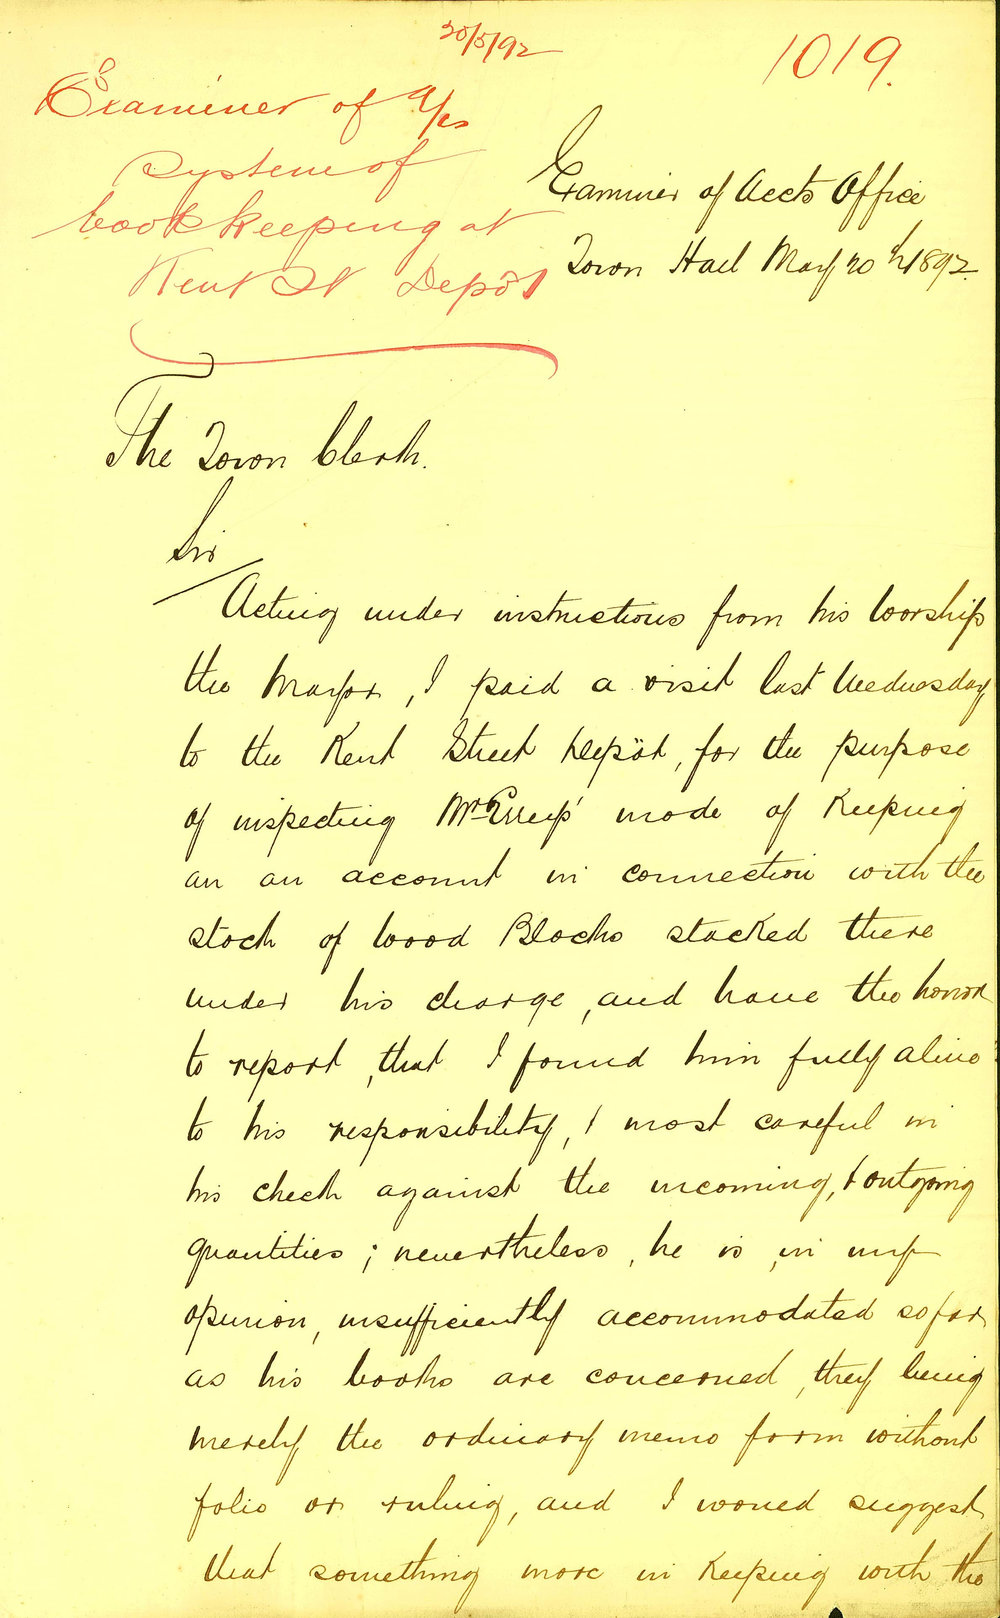 20/5/92
1019.
Examiner of a/cs
system of
bookkeeping at
Kent St Depôt
Examiner of Accts Office
Town Hall May 20th 1892
The Town Clerk.
Sir
Acting under instructions from his Worship
the Mayor, I paid a visit last Wednesday
to the Kent Street Depôt, for the purpose
of inspecting Mr mode of keeping
an an account in connection with the
stock of Wood Blocks stacked there
under his charge, and have the honor
to report, that I found him fully alive
to his responsibility, & most careful in
his check against the incoming, & outgoing
quantities; nevertheless, he is, in my
opinion, insufficiently accommodated so far
as his books are concerned, they being
merely the ordinary memo form without
folio or ruling, and I would suggest
that something more in keeping with the